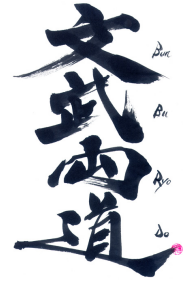 文武両道
Bun
Bu
Ryo
Do